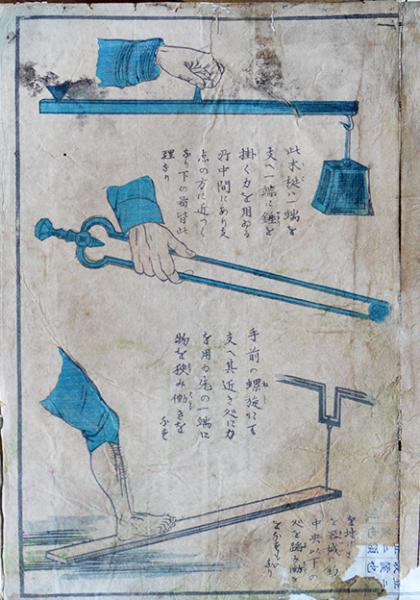 此木挺ハ一端を
支へ一端に錘を
掛く力を用ゐる
処中間にあり支
点の方に近づく
なり下の図皆此
理なり
手前の螺旋にて
支へ其近き処に力
を用ゐ尾の一端に
物を挟み働きを
なす
中央以下の
処を踏み働き
をなすなり